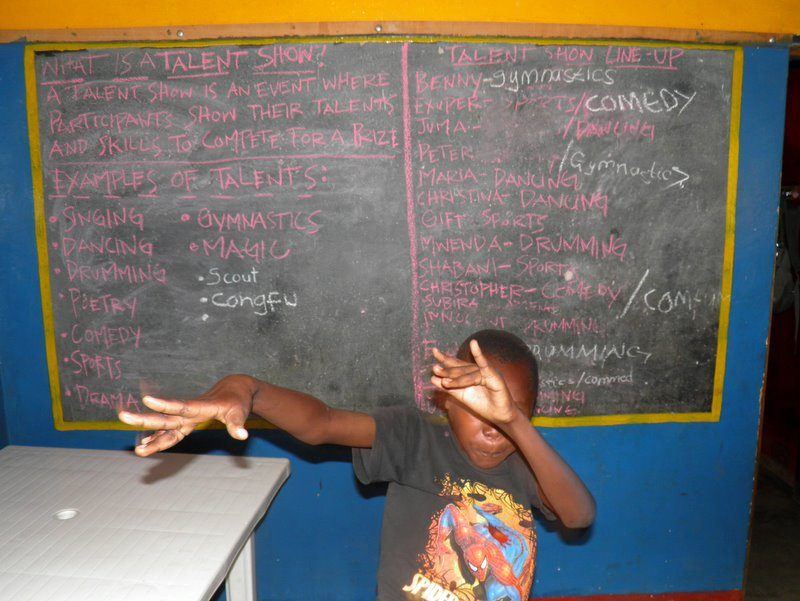 WHAT IS A TALENT SHOW?
A TALENT SHOW IS AN EVENT WHERE
PARTICIPANTS SHOW THEIR TALENTS
AND SKILLS TO COMPETE FOR A PRIZE
EXAMPLES OF TALENTS:
• SINGING
• DANCING
• DRUMMING
• POETRY
• COMEDY
• SPORTS
• DRAMA
• GYMNASTICS
• MAGIC
• Scout
• Congfu
TALENT SHOW LINE-UP
BENNY-gymnastics
EXUPER- SPORTS/COMEDY
JUMA- /DANCING
PETER /Gymnastics
MARIA- DANCING
CHRISTINA- DANCING
GIFT- SPORTS
MWENDA- DRUMMING
SHABANI- SPORTS
CHRISTOPHER- COMEDY
SUBIRA
DRUMMING
DRUMMING